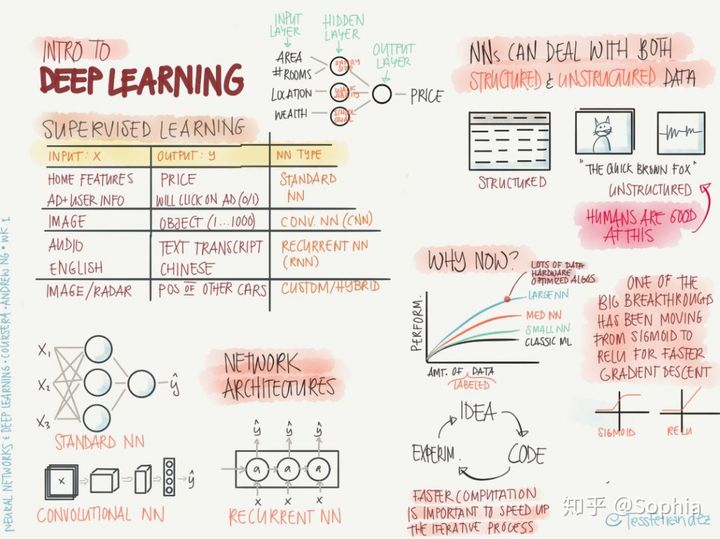 INTRO TO
DEEP LEARNING
INPUT LAYER
HIDDEN LAYER
OUTPUT LAYER
AREA
#ROOMS
LOCATION
WEALTH
PRICE
SUPERVISED LEARNING
INPUT: X OUTPUT: y NN TYPE
HOME FEATURES PRICE STANDARD
AD+USER INFO WILL CLICK ON AD (0/1) NN
IMAGE OBJECT (1...1000) CONV. NN (CNN)
AUDIO TEXT TRANSCRIPT RECURRENT NN
ENGLISH CHINESE (RNN)
IMAGE/RADAR POS OF OTHER CARS CUSTOM/HYBRID
NNs CAN DEAL WITH BOTH
STRUCTURED & UNSTRUCTURED DATA
STRUCTURED
"THE QUICK BROWN FOX"
UNSTRUCTURED
HUMANS ARE GOOD
AT THIS
WHY NOW?
LOTS OF DATA
HARDWARE
OPTIMIZED ALGOS
LARGE NN
MED NN
SMALL NN
CLASSIC ML
PERFORM.
AMT. OF DATA
LABELED
ONE OF THE
BIG BREAKTHROUGHS
HAS BEEN MOVING
FROM SIGMOID TO
RELU FOR FASTER
GRADIENT DESCENT
SIGMOID
RELU
X1
X2
X3
ŷ
STANDARD NN
X
ŷ
CONVOLUTIONAL NN
NETWORK
ARCHITECTURES
ŷ ŷ ŷ
a a a
X X X
RECURRENT NN
IDEA
CODE
EXPERIM.
FASTER COMPUTATION
IS IMPORTANT TO SPEED UP
THE ITERATIVE PROCESS
NEURAL NETWORKS & DEEP LEARNING • COURSERA • ANDREW NG • WK 1
知乎 @Sophia
@tessferrandez